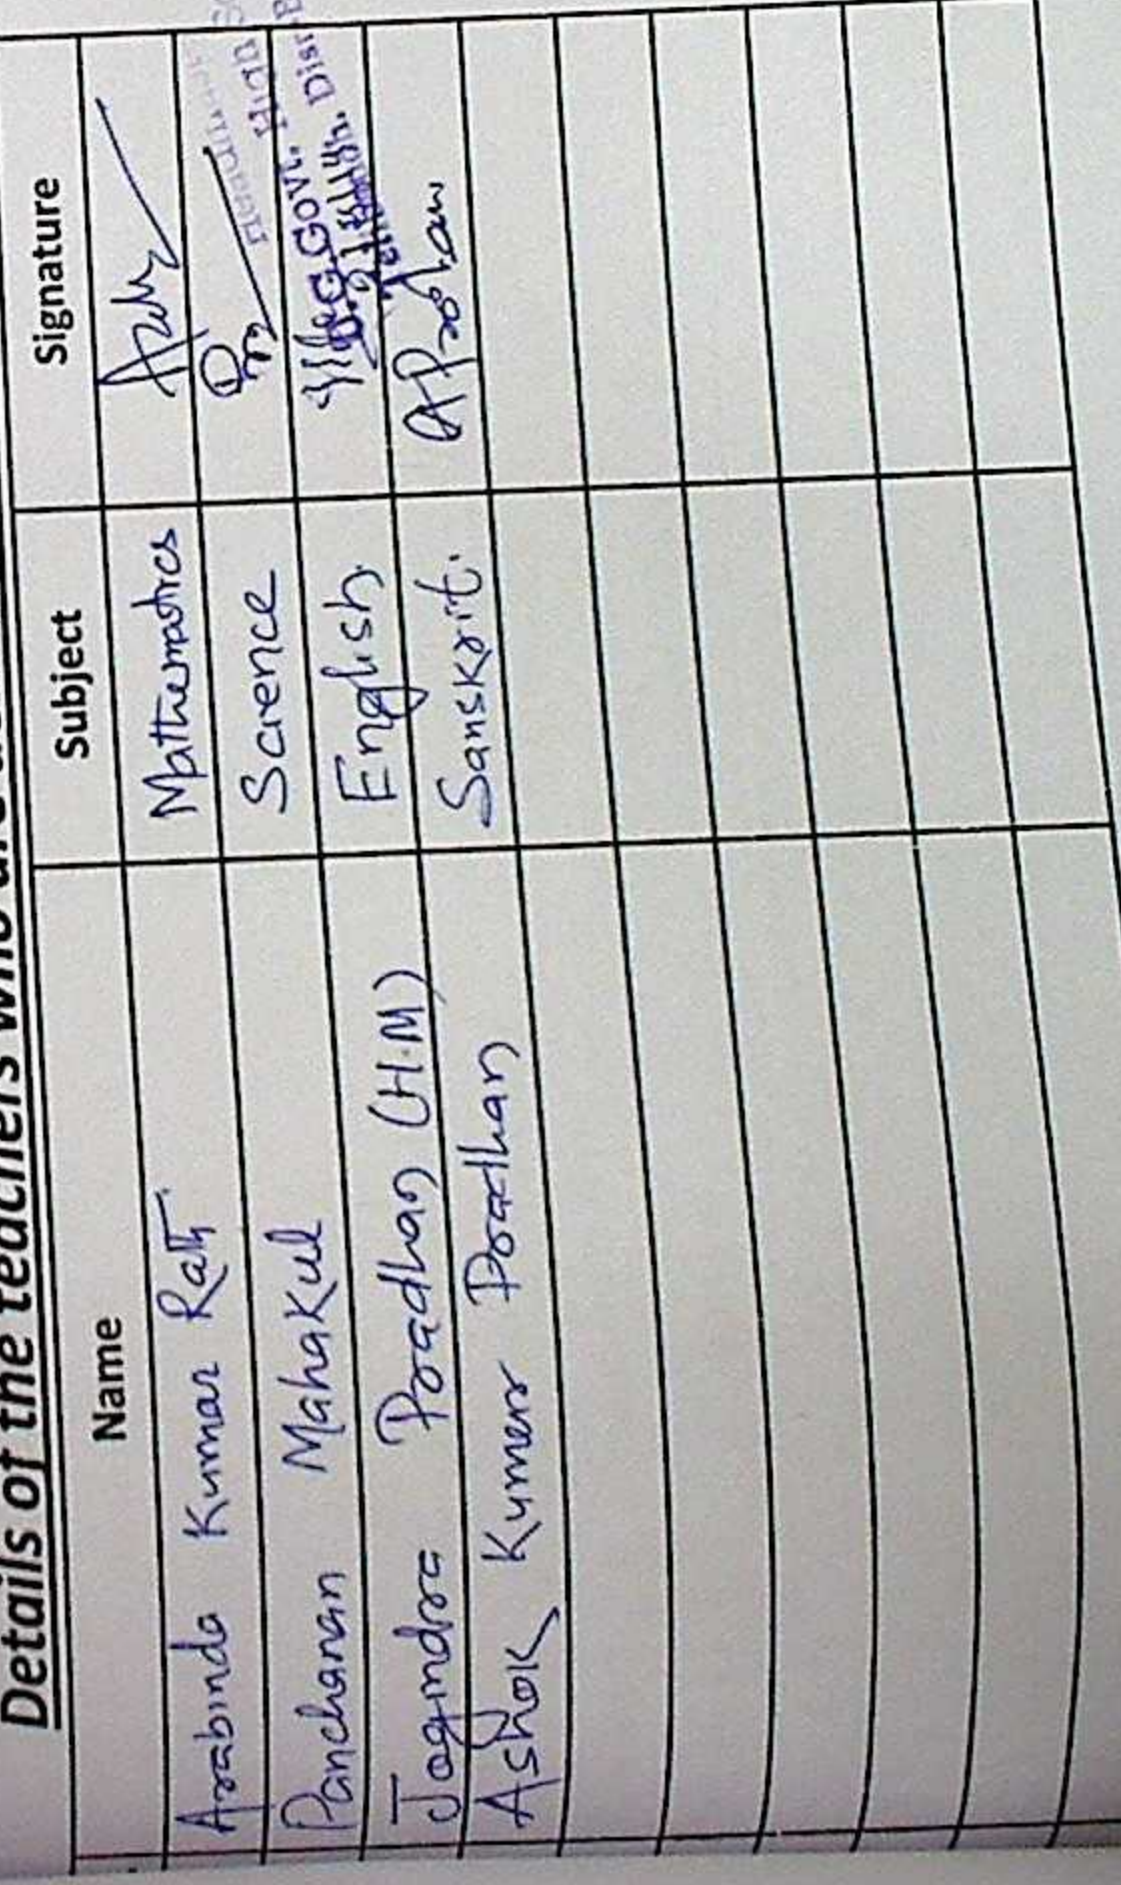 Details of the teachers who
Name Subject Signature
Arabinda Kumar Rath Mathematics
Panchanan Mahakul Science
Jogindra Pradhan (H.M) English
Ashok Kumar Pradhan Sanskrit. APradhan
Govt.